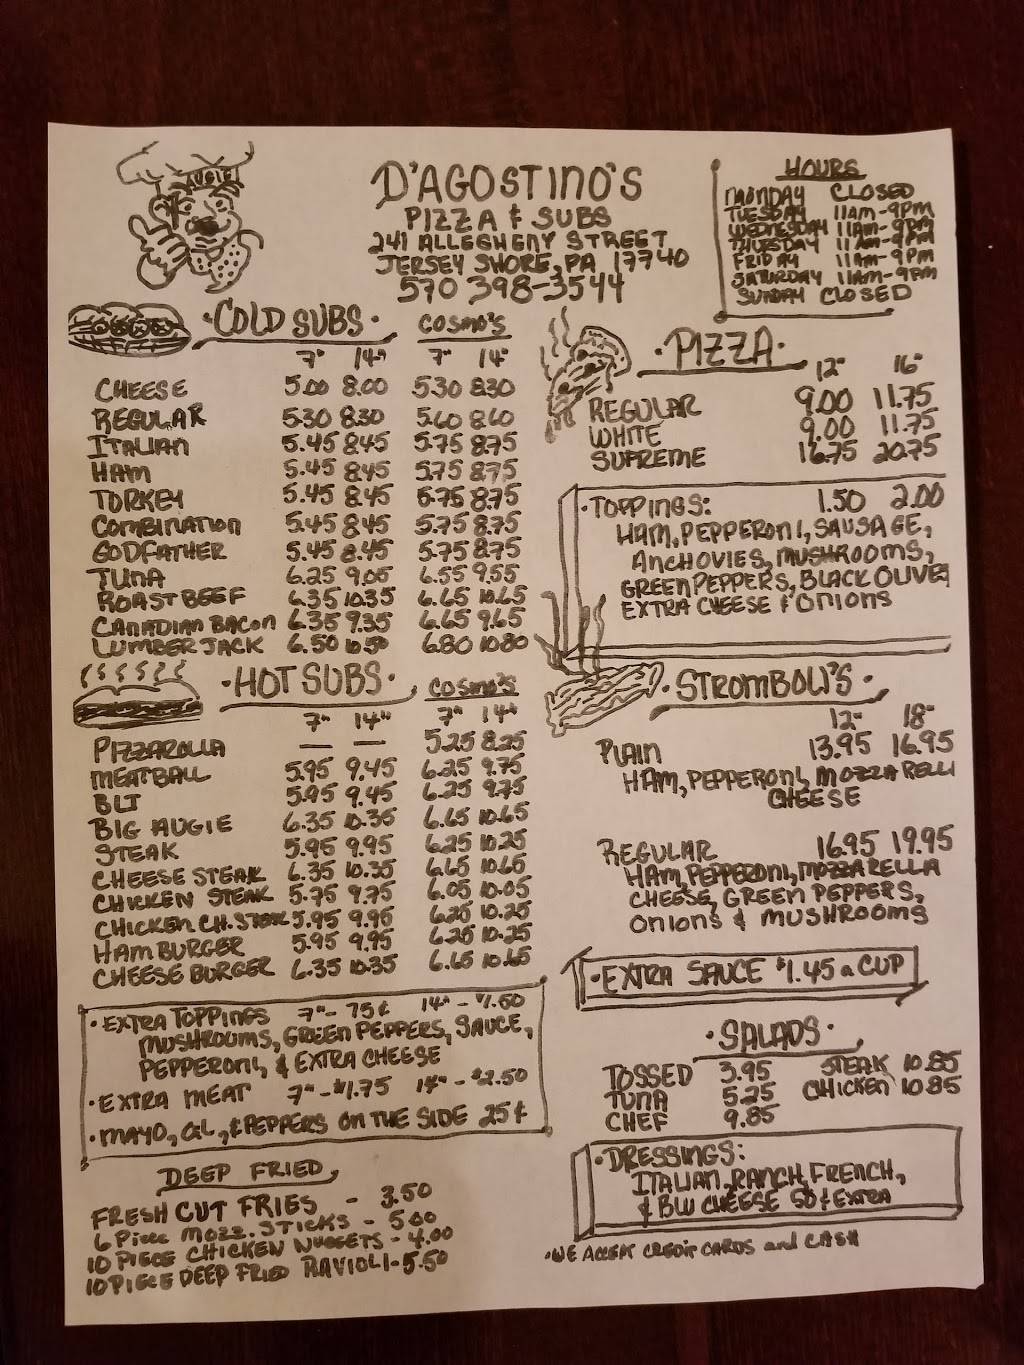 AUGIE
D'AGOSTINO'S
PIZZA & SUBS
241 ALLEGHENY STREET
JERSEY SHORE, PA 17740
570 398-3544
HOURS
MONDAY CLOSED
TUESDAY 11AM-9PM
WEDNESDAY 11AM-9PM
THURSDAY 11AM-9PM
FRIDAY 11AM-9PM
SATURDAY 11AM-9PM
SUNDAY CLOSED
·COLD SUBS· COSMO'S
7" 14" 7" 14"
CHEESE 5.00 8.00 5.30 8.30
REGULAR 5.30 8.30 5.60 8.60
ITALIAN 5.45 8.45 5.75 8.75
HAM 5.45 8.45 5.75 8.75
TURKEY 5.45 8.45 5.75 8.75
COMBINATION 5.45 8.45 5.75 8.75
GODFATHER 5.45 8.45 5.75 8.75
TUNA 6.25 9.05 6.55 9.55
ROAST BEEF 6.35 10.35 6.65 10.65
CANADIAN BACON 6.35 9.35 6.65 9.65
LUMBERJACK 6.50 10.50 6.80 10.80
·HOT SUBS· COSMO'S
7" 14" 7" 14"
PIZZAROLLA — — 5.25 8.25
MEATBALL 5.95 9.45 6.25 9.75
BLT 5.95 9.45 6.25 9.75
BIG AUGIE 6.35 10.35 6.65 10.65
STEAK 5.95 9.95 6.25 10.25
CHEESE STEAK 6.35 10.35 6.65 10.65
CHICKEN STEAK 5.75 9.75 6.05 10.05
CHICKEN CH. STEAK 5.95 9.95 6.25 10.25
HAMBURGER 5.95 9.95 6.25 10.25
CHEESE BURGER 6.35 10.35 6.65 10.65
·EXTRA TOPPINGS 7"- 75¢ 14"- $1.50
MUSHROOMS, GREEN PEPPERS, SAUCE,
PEPPERONI, & EXTRA CHEESE
·EXTRA MEAT 7"- $1.75 14"- $2.50
·MAYO, OIL, & PEPPERS ON THE SIDE 25¢
DEEP FRIED
FRESH CUT FRIES - 3.50
6 Piece MOZZ. STICKS - 5.00
10 PIECE CHICKEN NUGGETS - 4.00
10 PIECE DEEP FRIED RAVIOLI - 5.50
·PIZZA·
12" 16"
REGULAR 9.00 11.75
WHITE 9.00 11.75
SUPREME 16.75 20.75
·TOPPINGS: 1.50 2.00
HAM, PEPPERONI, SAUSAGE,
ANCHOVIES, MUSHROOMS,
GREEN PEPPERS, BLACK OLIVE,
EXTRA CHEESE & ONIONS
·STROMBOLI'S·
12" 18"
PLAIN 13.95 16.95
HAM, PEPPERONI, MOZZARELLI
CHEESE
REGULAR 16.95 19.95
HAM, PEPPERONI, MOZZARELLA
CHEESE, GREEN PEPPERS,
ONIONS & MUSHROOMS
·EXTRA SAUCE $1.45 a CUP
·SALADS·
TOSSED 3.95 STEAK 10.85
TUNA 5.25 CHICKEN 10.85
CHEF 9.85
·DRESSINGS:
ITALIAN, RANCH, FRENCH,
& BLU CHEESE 50¢ EXTRA
·WE ACCEPT CREDIT CARDS and CASH